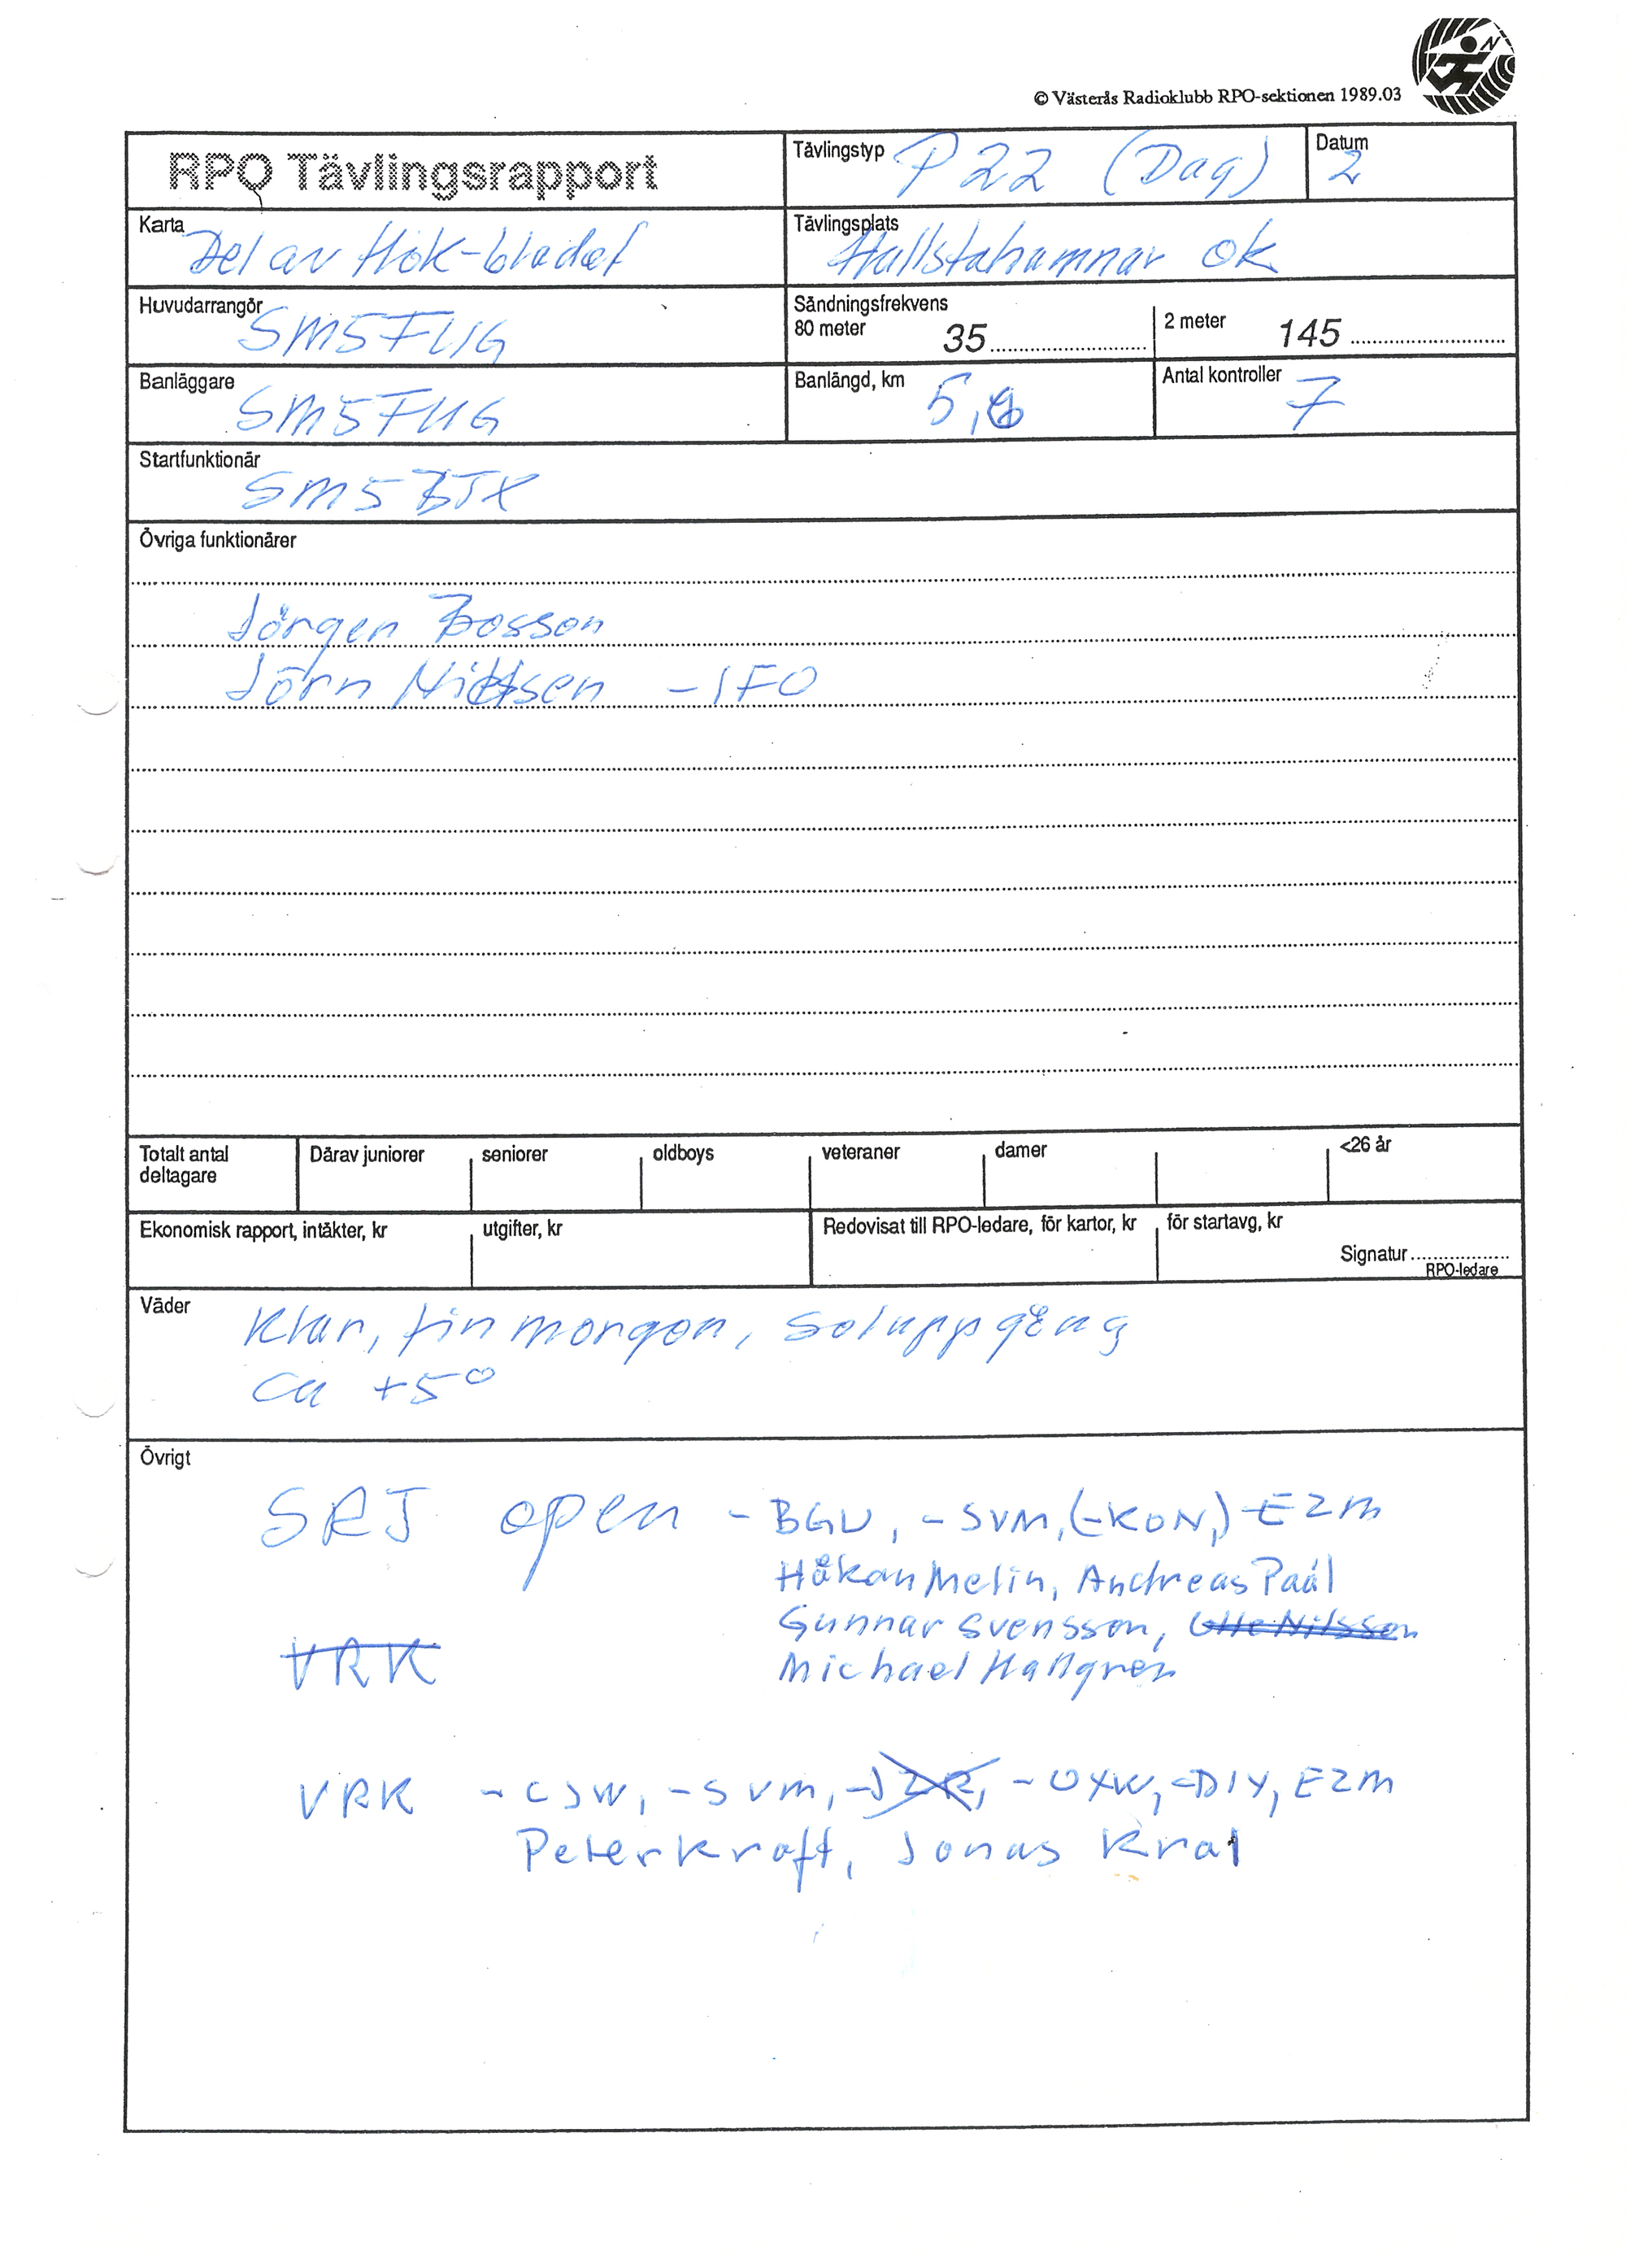 © Västerås Radioklubb RPO-sektionen 1989.03
RPO Tävlingsrapport
Tävlingstyp P 22 (Dag)
Datum 2
Karta Del av Hök-bladet
Tävlingsplats Hallstahammar OK
Huvudarrangör SM5FUG
Sändningsfrekvens
80 meter 35
2 meter 145
Banläggare SM5FUG
Banlängd, km 5,6
Antal kontroller 7
Startfunktionär SM5BTX
Övriga funktionärer
Jörgen Bosson
Jörn -IFO
Totalt antal deltagare
Därav juniorer
seniorer
oldboys
veteraner
damer
<26 år
Ekonomisk rapport, intäkter, kr
utgifter, kr
Redovisat till RPO-ledare, för kartor, kr
för startavg, kr
Signatur
RPO-ledare
Väder
Klar, fin morgon, soluppgång
Ca +5°
Övrigt
SRJ open - BGU, - SVM, (-KON,) -EZM
Håkan Melin, Andreas Paál
Gunnar Svensson, Olle Nilsson
VRK
Michael Hallgren
VRK - CJW, - SVM, -JZR, - OXW, -DIY, EZM
Peter Kraft, Jonas Kral